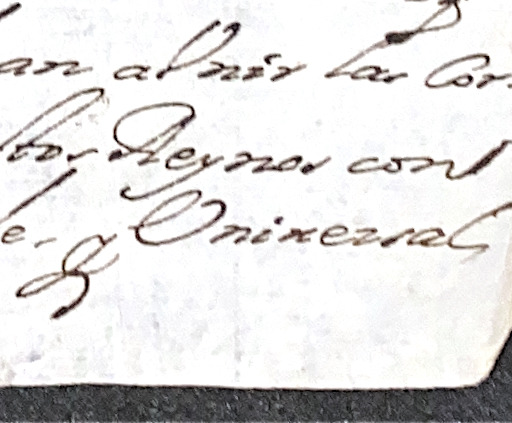 an al Vnir las Cor
stos Reynos con l
e. y Vniversal